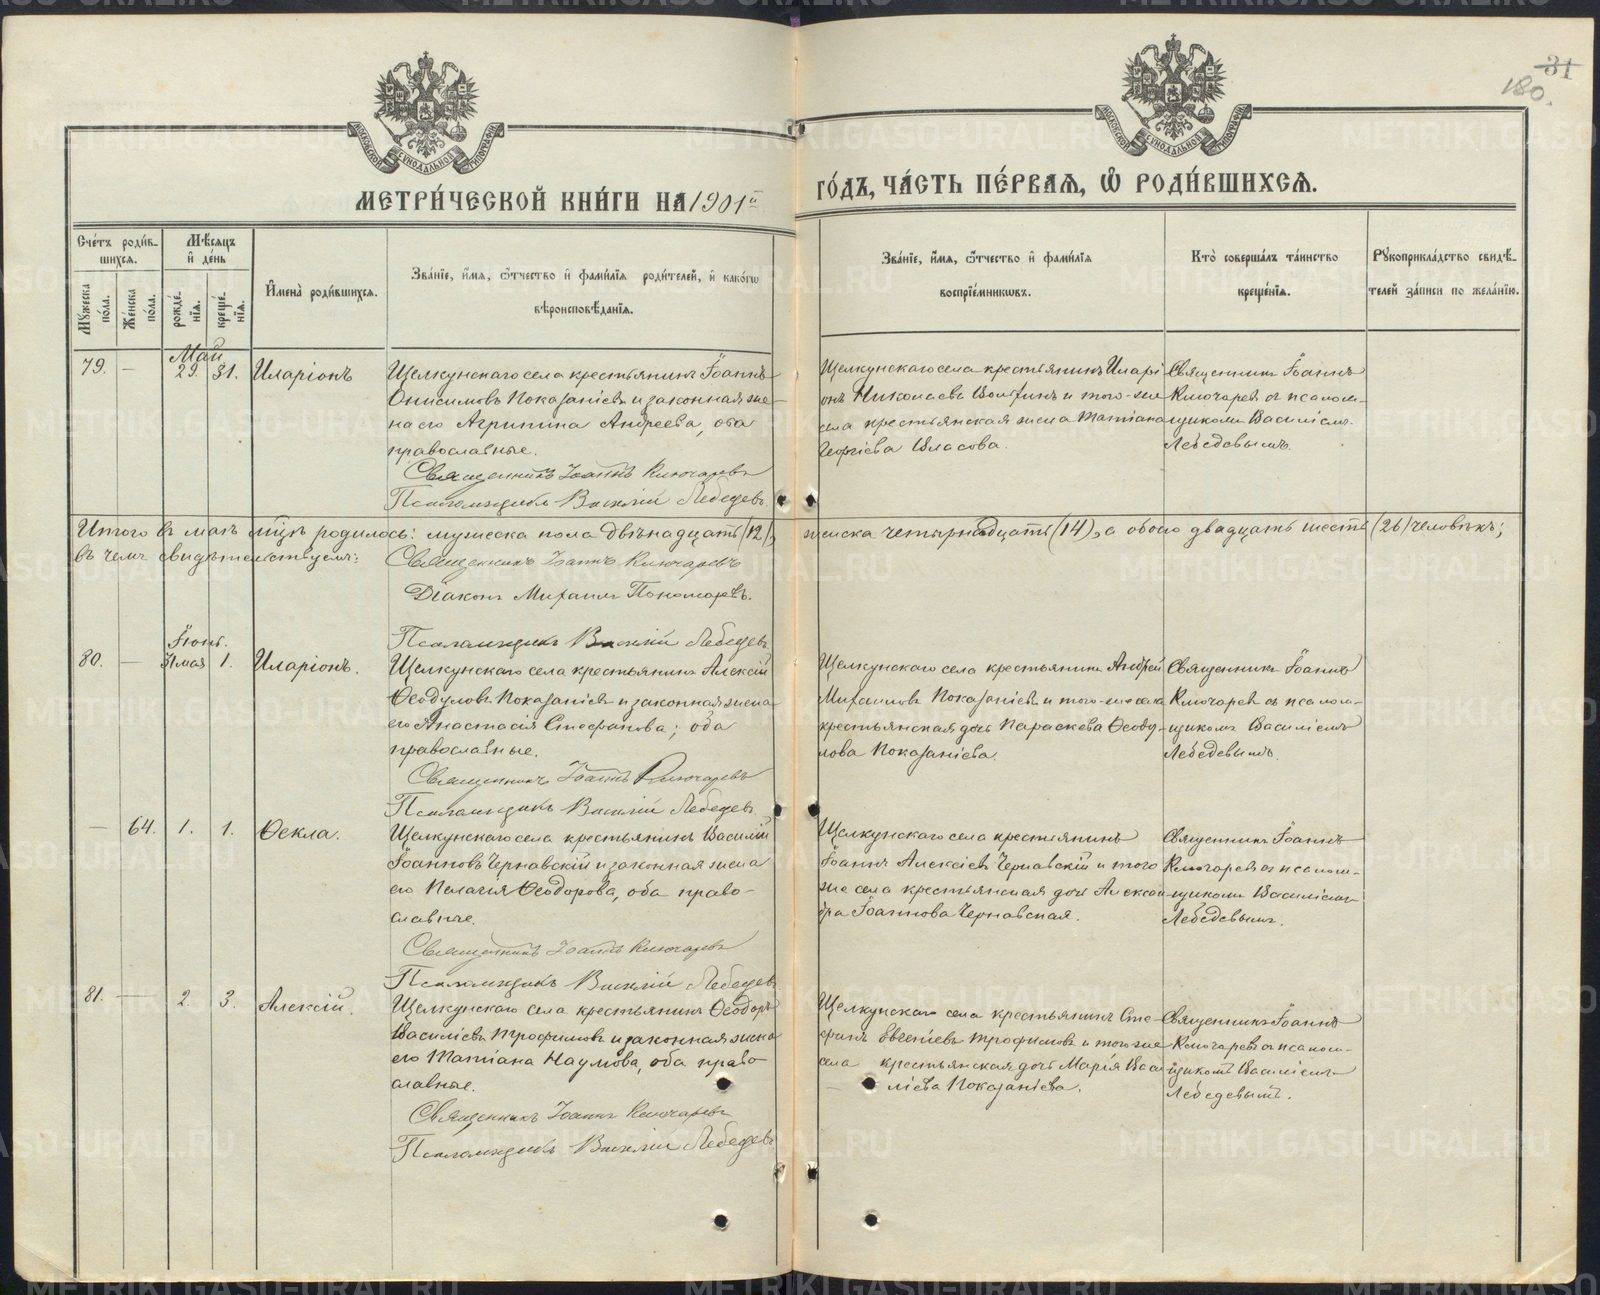 31
180.
МЕТРИ́ЧЕСКОЙ КНИ́ГИ НА 1901й ГО́ДЪ, ЧА́СТЬ ПЕ́РВАЯ, Ѽ РОДИ́ВШИХСЯ.
Сче́тъ роди́вшихся.
Мѣ́сяцъ и де́нь
Мꙋ́жеска по́ла.
Же́нска по́ла.
рожде́нїѧ.
креще́нїѧ.
И҆мена̀ роди́вшихся.
Зва́нїе, и҆́мѧ, ѻ҆́тчество и҆ фами́лїѧ роди́телей, и҆ како́гѡ вѣроисповѣ́данїѧ.
Зва́нїе, и҆́мѧ, ѻ҆́тчество и҆ фами́лїѧ воспрїе́мникѡвъ.
Кто̀ соверша́лъ та́инство креще́нїѧ.
Рꙋкоприкла́дство свидѣ́телей за́писи по жела́нїю.
Май
79. — 29. 31. Иларіонъ
Щелкунскаго села крестьянинъ Іоаннъ
Онисимовъ Показаніевъ и законная же-
на его Агрипина Андреева, оба
православные.
Священникъ Іоаннъ Ключаревъ
Псаломщикъ Василій Лебедевъ
Щелкунскаго села крестьянинъ Иларі-
онъ Николаевъ Волгинъ и того-же
села крестьянская жена Татіана
Георгіева Власова.
Священникъ Іоаннъ
Ключаревъ съ псалом-
щикомъ Василіемъ
Лебедевымъ.
Итого въ маѣ мцѣ родилось: мужеска пола двѣнадцать (12), женска четырнадцать (14), а обоего двадцать шесть (26) человѣкъ;
въ чемъ свидѣтельствуемъ:
Священникъ Іоаннъ Ключаревъ
Діаконъ Михаилъ Пономаревъ.
Псаломщикъ Василій Лебедевъ
Іюнь.
80. — 31 мая 1. Иларіонъ.
Щелкунскаго села крестьянинъ Алексій
Ѳеодуловъ Показаніевъ и законная жена
его Анастасія Стефанова; оба
православные.
Священникъ Іоаннъ Ключаревъ
Псаломщикъ Василій Лебедевъ
Щелкунскаго села крестьянинъ Андрей
Михаиловъ Показаніевъ и того-же села
крестьянская дочь Параскева Ѳеоду-
лова Показаніева.
Священникъ Іоаннъ
Ключаревъ съ псалом-
щикомъ Василіемъ
Лебедевымъ.
— 64. 1. 1. Ѳекла.
Щелкунскаго села крестьянинъ Василій
Іоанновъ Чернавскій и законная жена
его Пелагія Ѳеодорова, оба право-
славные.
Священникъ Іоаннъ Ключаревъ
Псаломщикъ Василій Лебедевъ
Щелкунскаго села крестьянинъ
Іоаннъ Алексіевъ Чернавскій и того
же села крестьянская дочь Алексан-
дра Іоаннова Чернавская.
Священникъ Іоаннъ
Ключаревъ съ псалом-
щикомъ Василіемъ
Лебедевымъ.
81. — 2. 3. Алексій.
Щелкунскаго села крестьянинъ Ѳеодоръ
Василіевъ Трофимовъ и законная жена
его Татіана Наумова, оба право-
славные.
Священникъ Іоаннъ Ключаревъ
Псаломщикъ Василій Лебедевъ
Щелкунскаго села крестьянинъ Сте-
фанъ Евгеніевъ Трофимовъ и того же
села крестьянская дочь Марія Васи-
ліева Показаніева.
Священникъ Іоаннъ
Ключаревъ съ псалом-
щикомъ Василіемъ
Лебедевымъ.